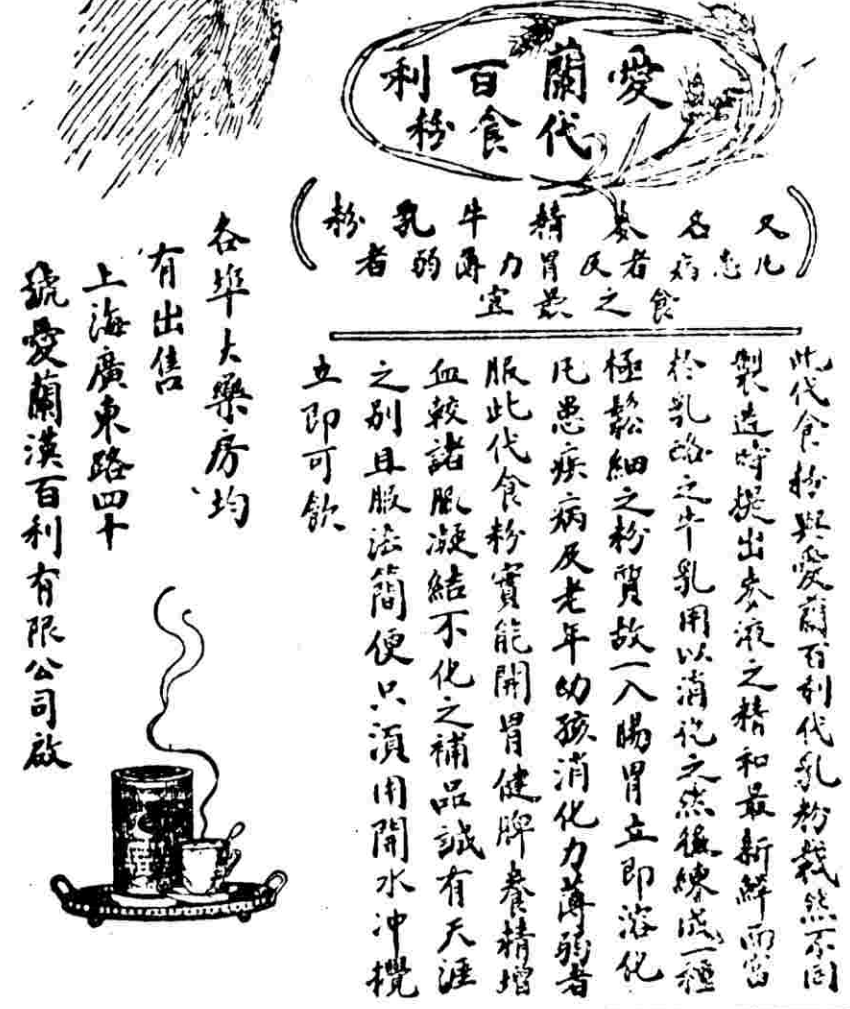 愛蘭百利
代食粉
又名麥精牛乳粉
凡患病者及胃力薄弱者
食之最宜
此代食粉與愛蘭百利代乳粉截然不同
製造時提出麥液之精和最新鮮而富
於乳酪之牛乳用以消化之然後練成一種
極鬆細之粉質故一入腸胃立即溶化
凡患疾病及老年幼孩消化力薄弱者
服此代食粉實能開胃健脾養精增
血較諸服凝結不化之補品誠有天涯
之別且服法簡便只須用開水冲攪
立即可飲
各埠大藥房均
有出售
上海廣東路四十
號愛蘭漢百利有限公司啟